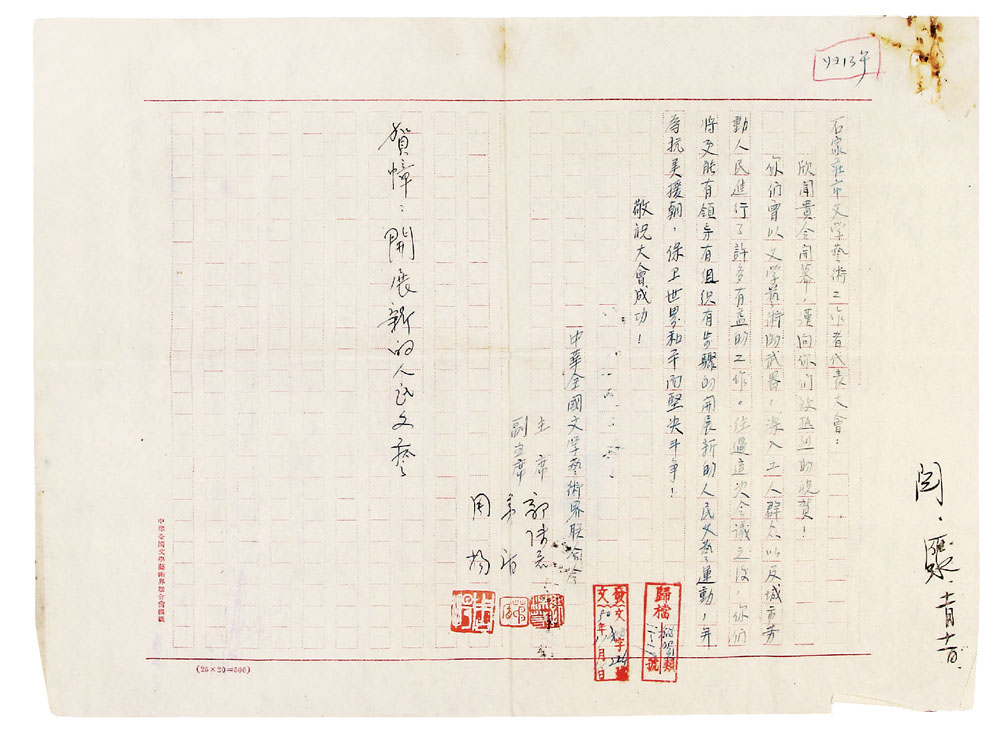 石家莊市文学藝術工作者代表大會：
欣聞貴会開幕，謹向你們致熱烈的祝賀！
你們曾以文学藝術的武器，深入工人群众以及城市劳
動人民進行了許多有益的工作。経過這次会議之後，你們
將更能有領導有組织有步驟的開展新的人民文藝運動，并
為抗美援朝，保卫世界和平而堅决斗争！
敬祝大會成功！
中華全國文学藝術界联合会
主席 郭沫若
副主席 茅盾
周揚
賀幛：開展新的人民文藝
歸檔
類
號
發文
文字
年 月 日
中華全國文學藝術界聯合會稿紙
(25×20=500)